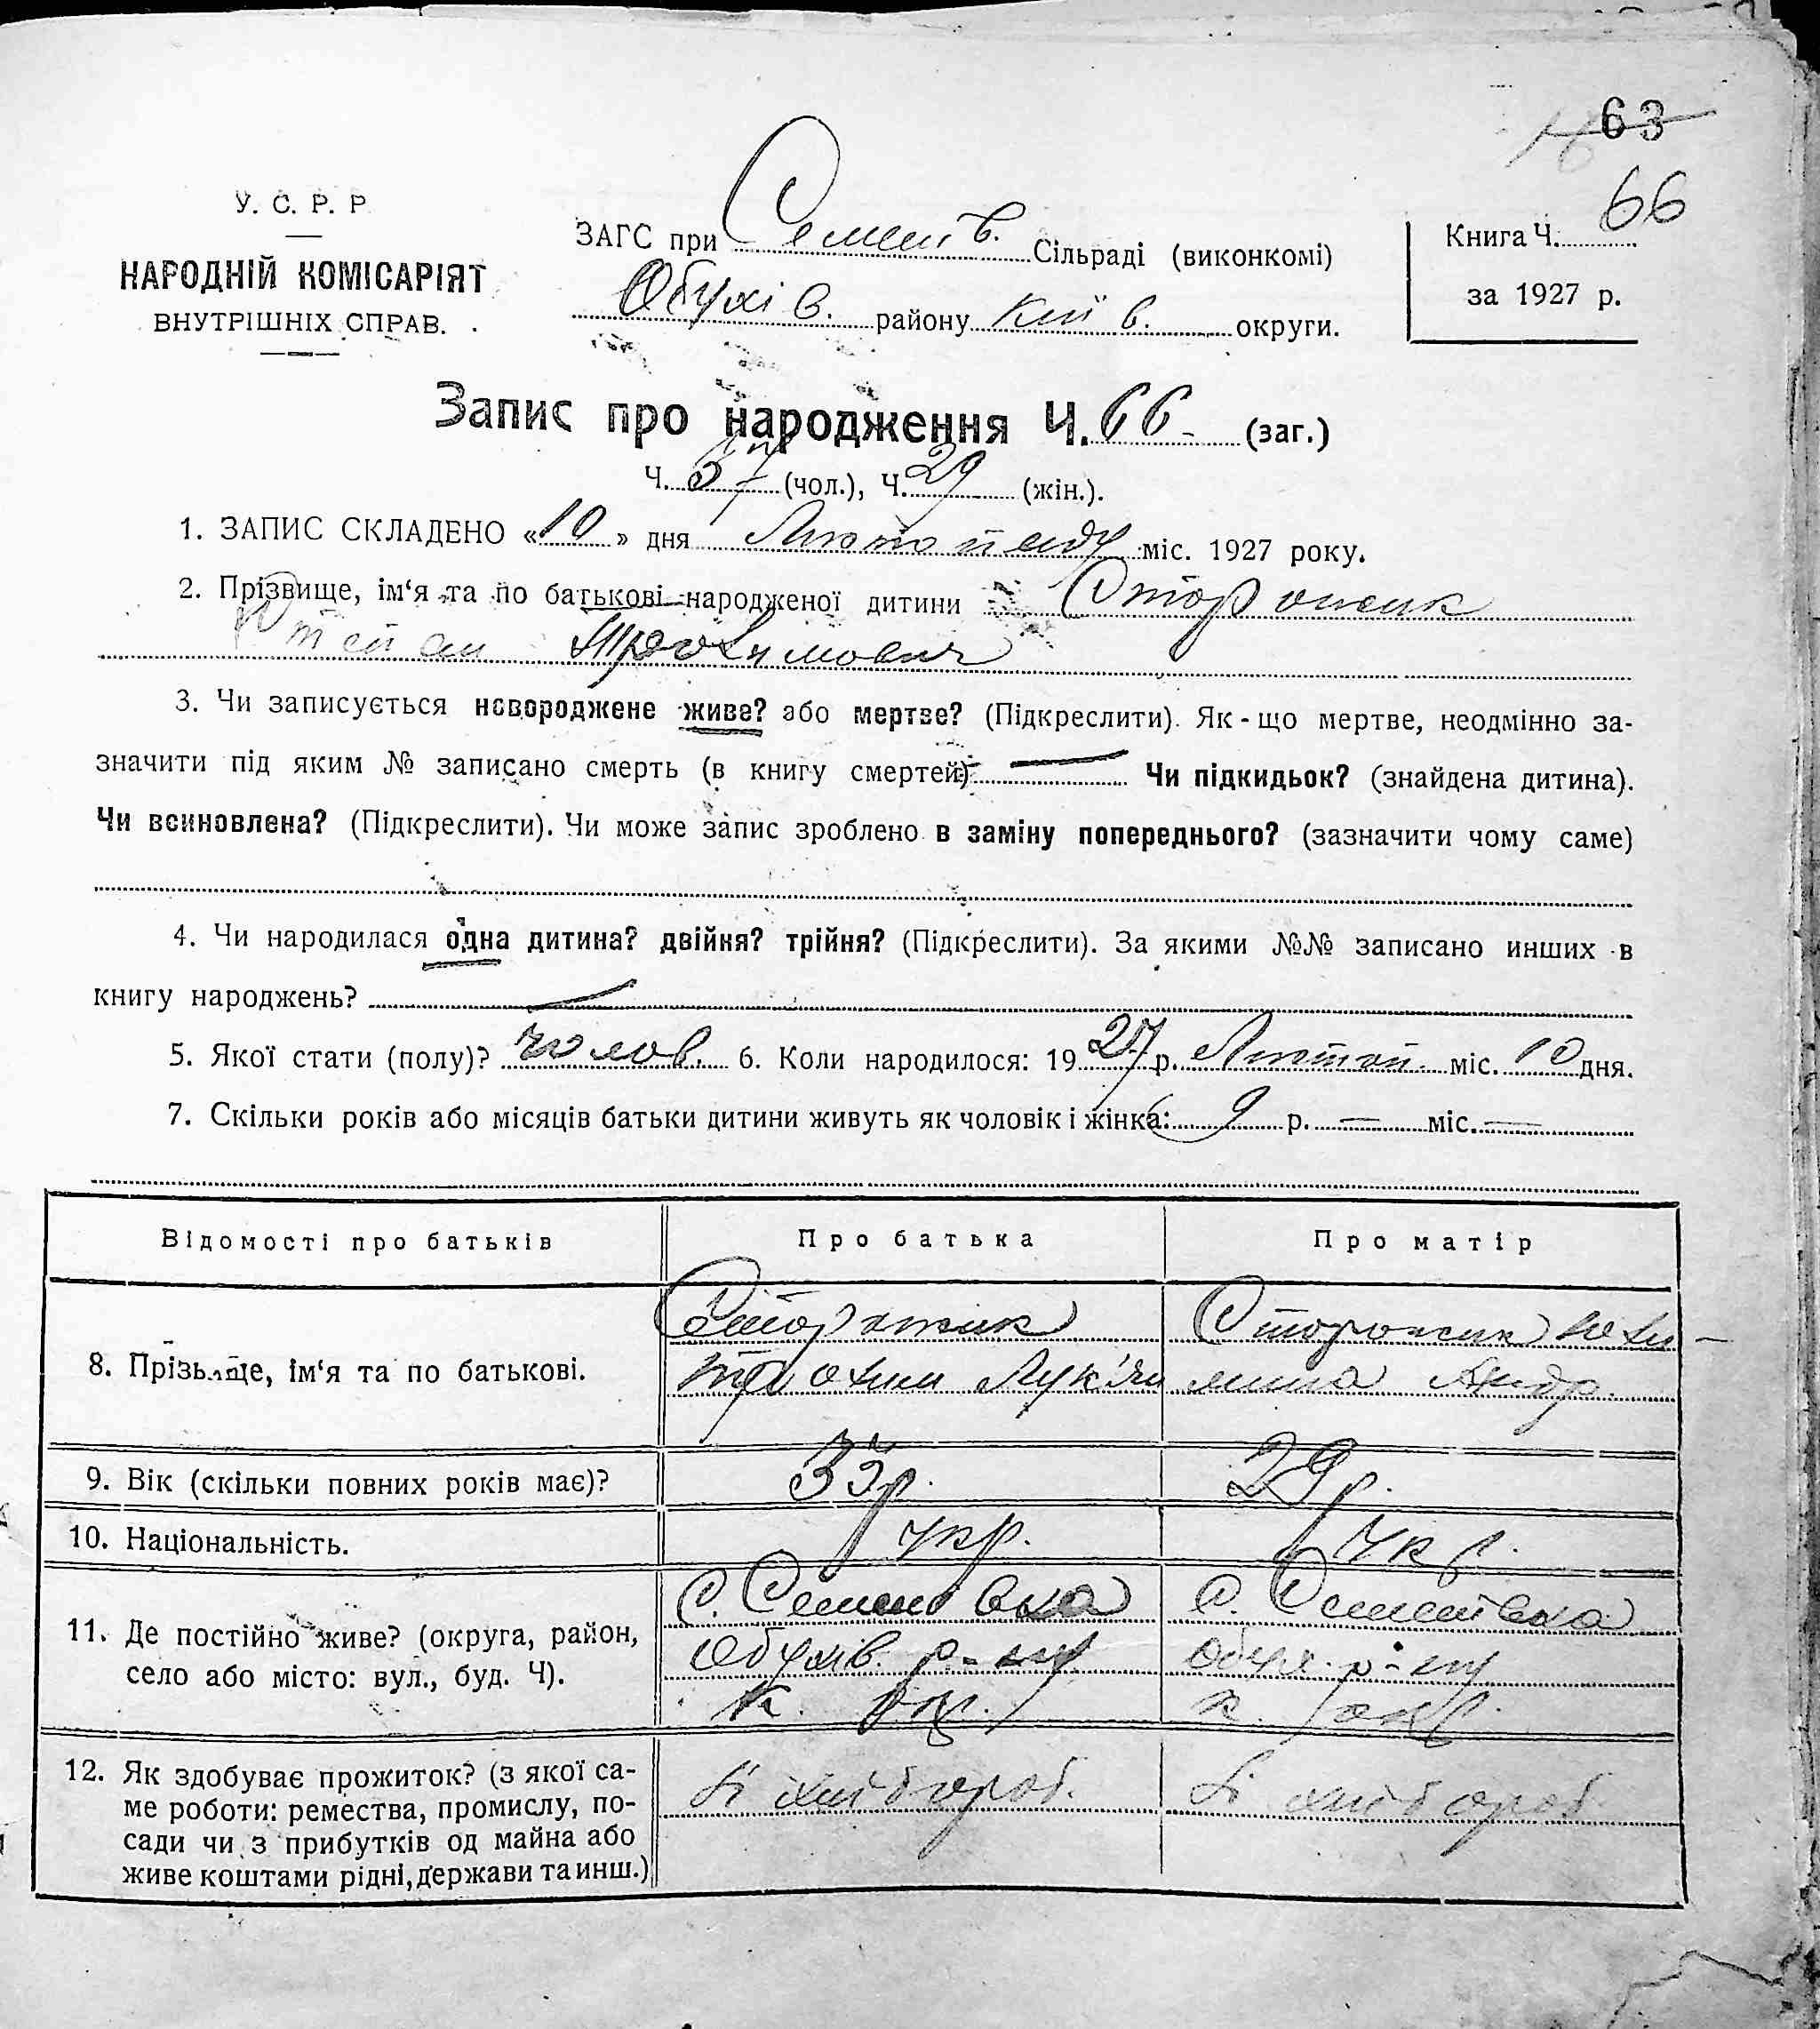 63
66
У. С. Р. Р
НАРОДНІЙ КОМІСАРІЯТ
ВНУТРІШНІХ СПРАВ.
ЗАГС при Семенів. Сільраді (виконкомі)
Обухів. району Київ. округи.
Книга Ч.
за 1927 р.
Запис про народження Ч. 66 (заг.)
Ч. 37 (чол.), Ч. 29 (жін.).
1. ЗАПИС СКЛАДЕНО «10» дня Листопаду міс. 1927 року.
2. Прізвище, ім‘я та по батькові народженої дитини Сторожик
Степан Трохимович
3. Чи записується новороджене живе? або мертве? (Підкреслити). Як-що мертве, неодмінно за-
значити під яким № записано смерть (в книгу смертей) — Чи підкидьок? (знайдена дитина).
Чи всиновлена? (Підкреслити). Чи може запис зроблено в заміну попереднього? (зазначити чому саме)
4. Чи народилася одна дитина? двійня? трійня? (Підкреслити). За якими №№ записано инших в
книгу народжень? —
5. Якої стати (полу)? чолов. 6. Коли народилося: 1927 р. Листоп. міс. 10 дня.
7. Скільки років або місяців батьки дитини живуть як чоловік і жінка: 9 р. — міс. —
Відомості про батьків Про батька Про матір
8. Прізвище, ім‘я та по батькові.
Сторожик Сторожик Юхи-
Трохим Лук'ян мина Андр.
9. Вік (скільки повних років має)? 33 р. 29 р.
10. Національність. укр. укр.
11. Де постійно живе? (округа, район,
село або місто: вул., буд. Ч).
С. Семенівка С. Семенівка
Обухів. р-ну Обух. р-ну
К. окр. К. окр.
12. Як здобуває прожиток? (з якої са-
ме роботи: ремества, промислу, по-
сади чи з прибутків од майна або
живе коштами рідні, держави та инш.)
хлібороб. хлібороб.